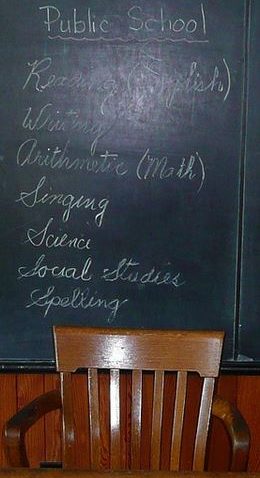 Public School
Reading (English)
Writing
Arithmetic (Math)
Singing
Science
Social Studies
Spelling